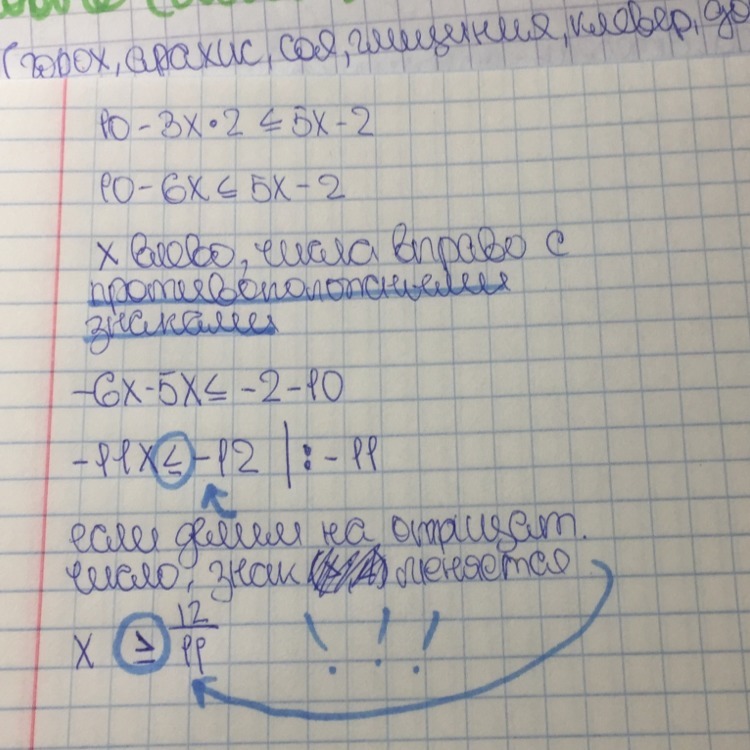 (горох, арахис, соя, глициния, клевер, до
10 - 3x • 2 ≤ 5x - 2
10 - 6x ≤ 5x - 2
x влево, числа вправо с
противоположными
знаками
-6x - 5x ≤ -2 - 10
-11x ≤ -12 | : - 11
если делим на отрицат.
число, знак меняется
x ≥ 12/11 !!!